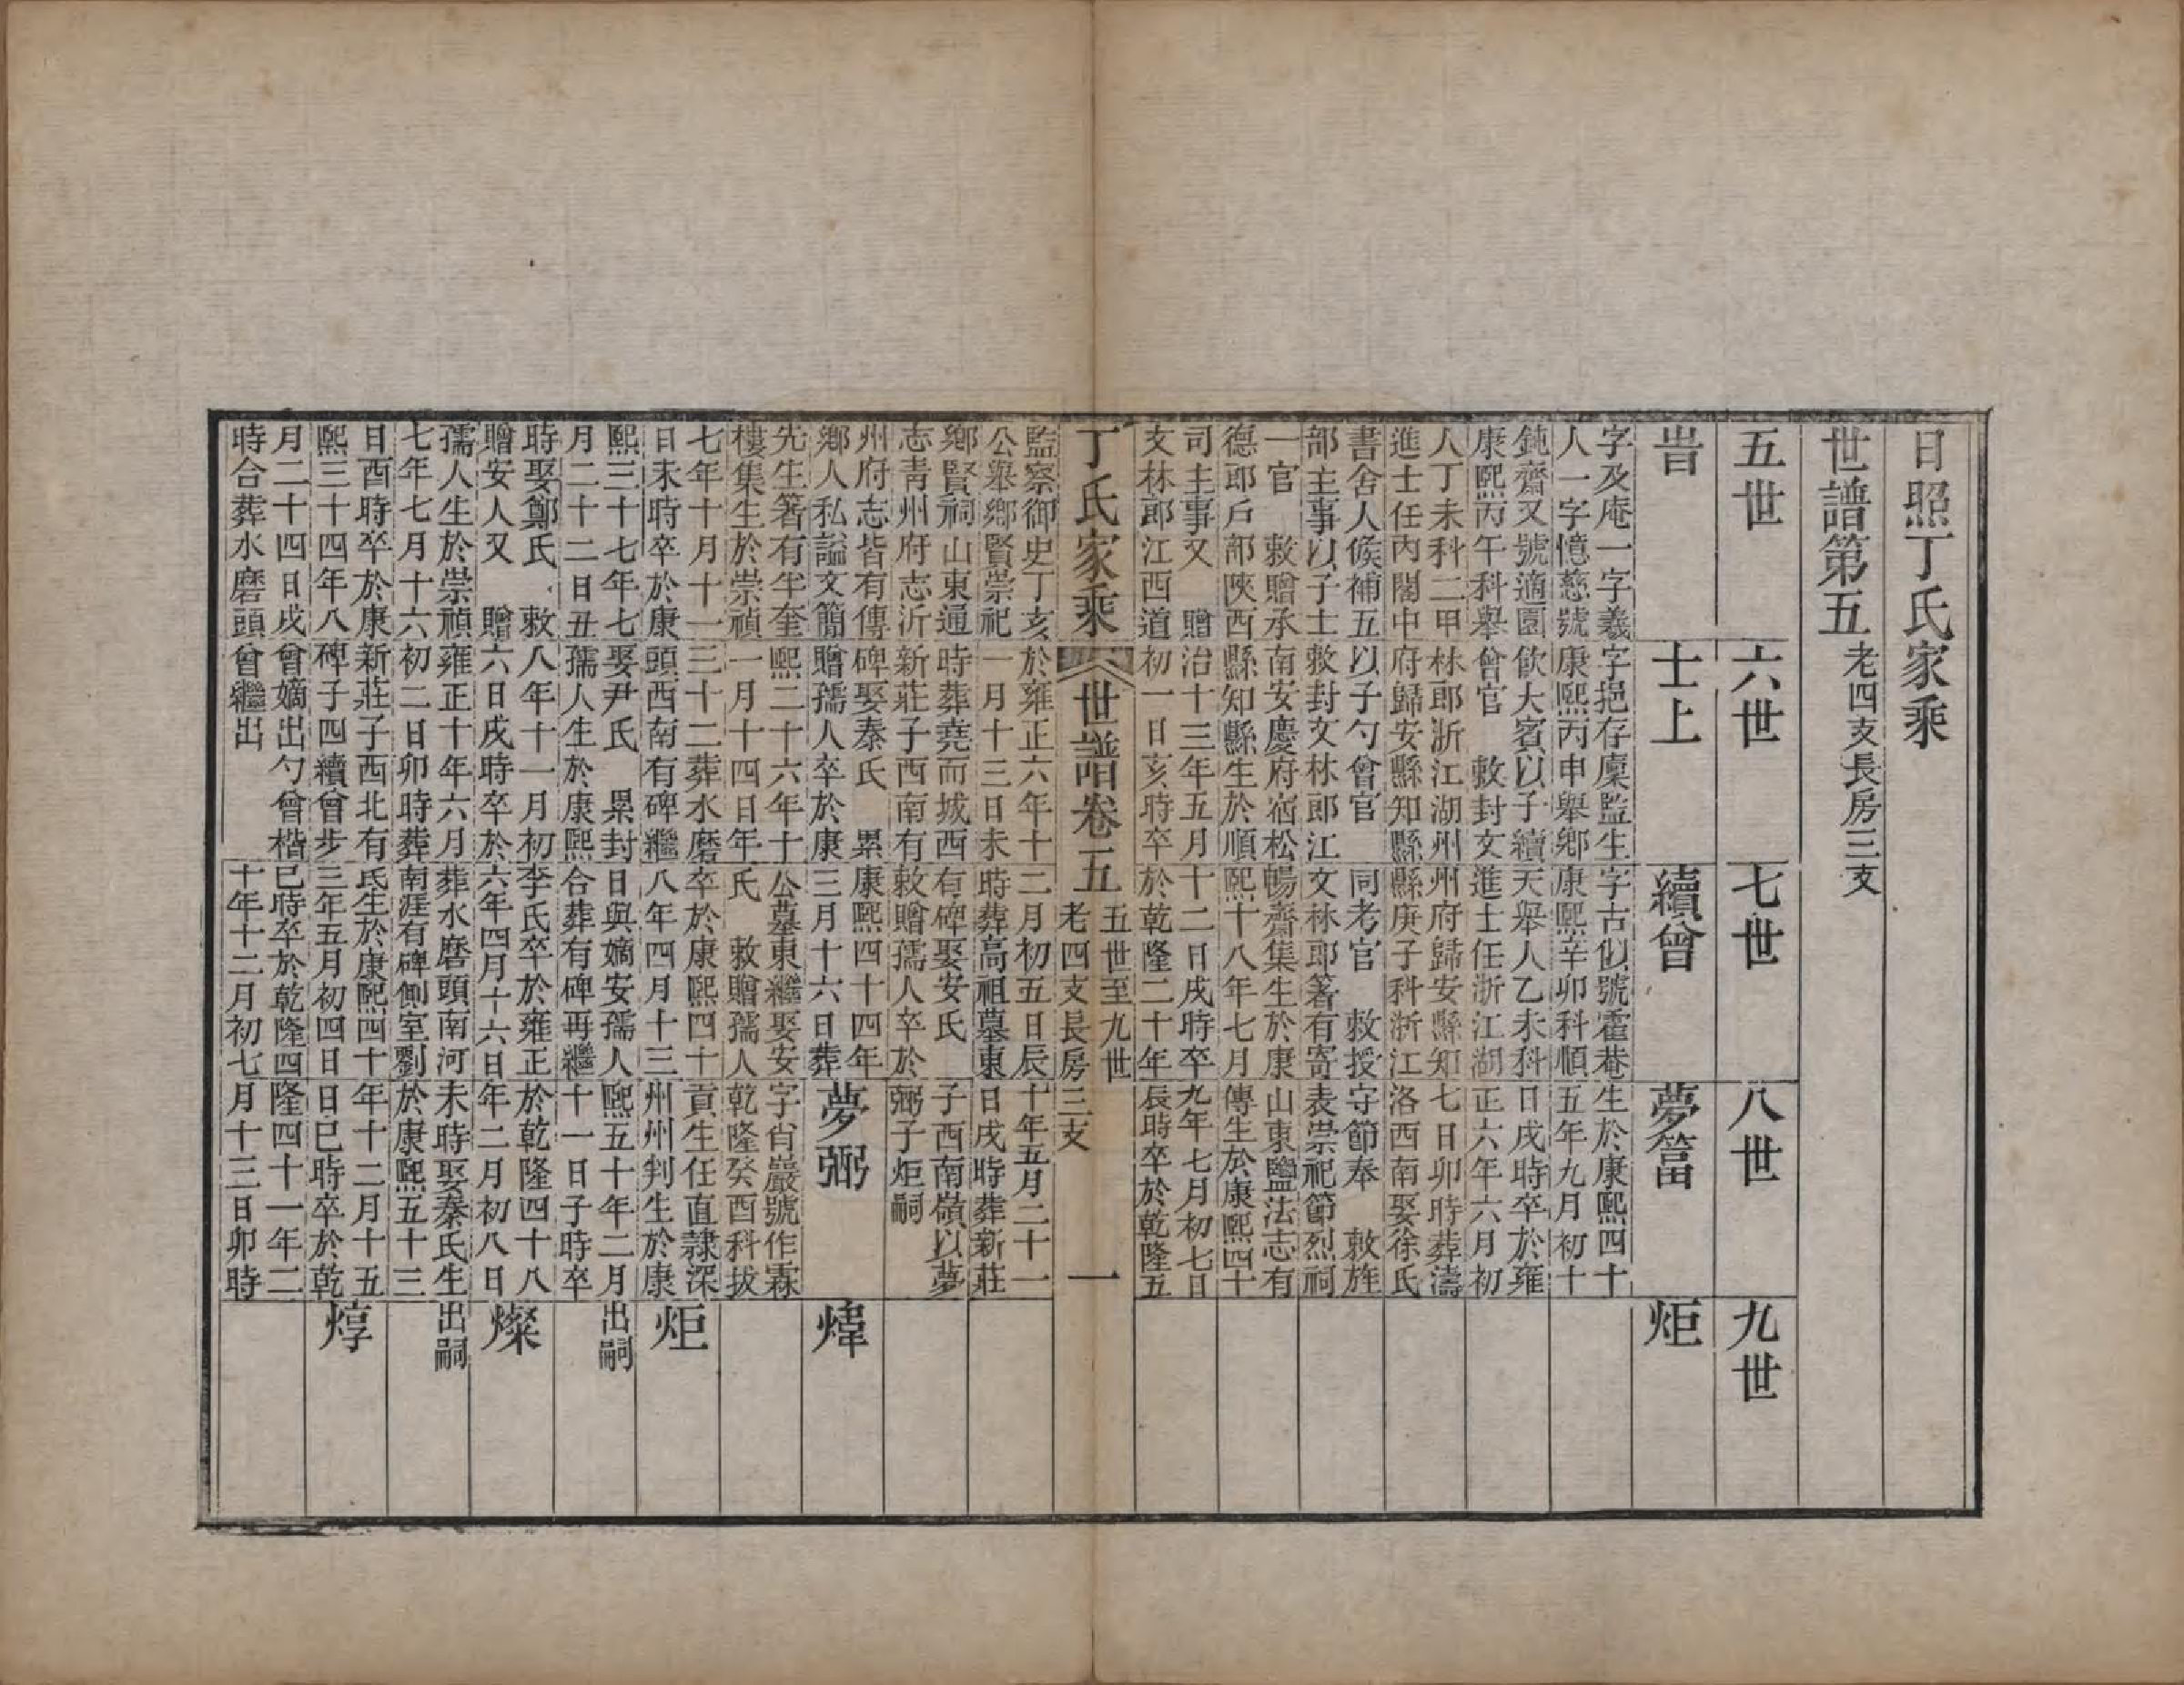 日照丁氏家乘
世譜第五老四支長房三支
五世
昔
字及庵一字羲
人一字憶慈號
鈍齋又號適園
康熙丙午科舉
人丁未科二甲
進士任內閣中
書舍人候補五
部主事以子士
一官　敕贈承
德郎戶部陝西
司主事又　贈
文林郎江西道
監察御史丁亥
公舉鄉賢崇祀
鄉賢祠山東通
志青州府志沂
州府志皆有傳
鄉人私謚文簡
先生著有半奎
樓集生於崇禎
七年十月十一
日未時卒於康
熙三十七年七
月二十二日丑
時娶鄭氏　敕
贈安人又　贈
孺人生於崇禎
七年七月十六
日酉時卒於康
熙三十四年八
月二十四日戌
時合葬水磨頭
六世
士上
字挹存廩監生
康熙丙申舉鄉
飲大賓以子續
曾官　敕封文
林郎浙江湖州
府歸安縣知縣
以子勺曾官
敕封文林郎江
南安慶府宿松
縣知縣生於順
治十三年五月
初一日亥時卒
於雍正六年十
一月十三日未
時葬堯而城西
新莊子西南有
碑娶秦氏　累
贈孺人卒於康
熙二十六年十
一月十四日年
三十二葬水磨
頭西南有碑繼
娶尹氏　累封
孺人生於康熙
八年十一月初
六日戌時卒於
雍正十年六月
初二日卯時葬
新莊子西北有
碑子四續曾步
曾嫡出勺曾楷
曾繼出
七世
續曾
字古似號霍菴
康熙辛卯科順
天舉人乙未科
進士任浙江湖
州府歸安縣知
縣庚子科浙江
同考官　敕授
文林郎著有寄
暢齋集生於康
熙十八年七月
十二日戌時卒
於乾隆二十年
二月初五日辰
時葬高祖墓東
有碑娶安氏
敕贈孺人卒於
康熙四十四年
三月十六日葬
公墓東繼娶安
氏　敕贈孺人
卒於康熙四十
八年四月十三
日與嫡安孺人
合葬有碑再繼
李氏卒於雍正
六年四月十六日
葬水磨頭南河
南涯有碑側室劉
氏生於康熙四十
三年五月初四日
巳時卒於乾隆四
十年十二月初七
八世
夢篃
生於康熙四十
五年九月初十
日戌時卒於雍
正六年六月初
七日卯時葬濤
洛西南娶徐氏
守節奉　敕旌
表崇祀節烈祠
山東鹽法志有
傳生於康熙四十
九年七月初七日
辰時卒於乾隆五
十年五月二十一
日戌時葬新莊
子西南嶺以夢
弼子炬嗣
夢弼
字肖巖號作霖
乾隆癸酉科拔
貢生任直隸深
州州判生於康
熙五十年二月
十一日子時卒
於乾隆四十八
年二月初八日
未時娶秦氏生
於康熙五十三
年十二月十五
日巳時卒於乾
隆四十一年二
月十三日卯時
九世
炬
煒
炬
出嗣
燦
出嗣
焞
丁氏家乘
世譜卷五
五世至九世
老四支長房三支
一